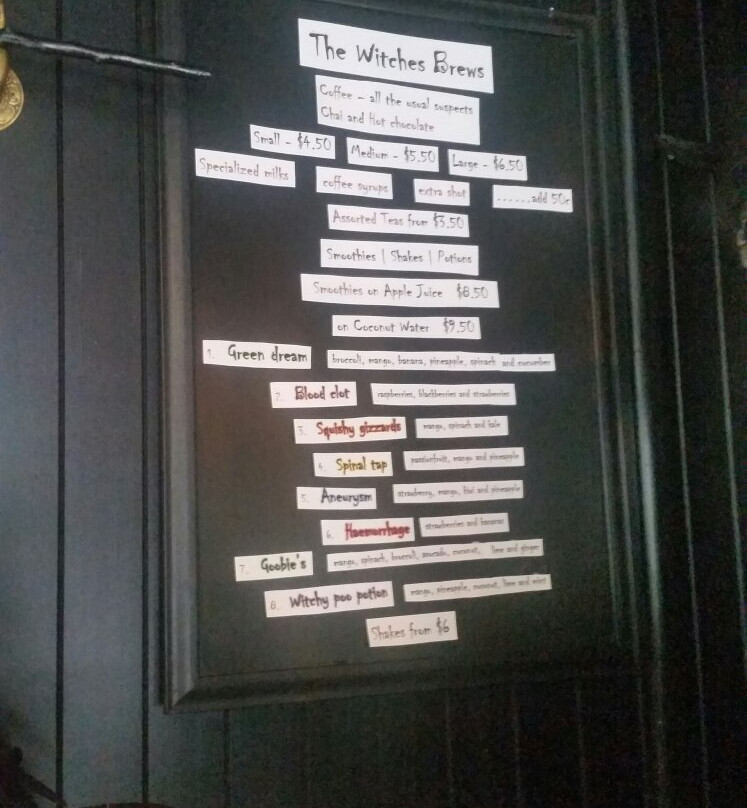 The Witches Brews
Coffee - all the usual suspects
Chai and Hot chocolate
Small - $4.50 Medium - $5.50 Large - $6.50
Specialized milks coffee syrups extra shot ......add 50c
Assorted Teas from $3.50
Smoothies | Shakes | Potions
Smoothies on Apple Juice $8.50
on Coconut Water $9.50
1. Green dream broccoli, mango, banana, pineapple, spinach and cucumber
2. Blood clot raspberries, blackberries and strawberries
3. Squishy gizzards mango, spinach and kale
4. Spinal tap passionfruit, mango and pineapple
5. Aneurysm strawberry, mango, kiwi and pineapple
6. Haemorrhage strawberries and bananas
7. Goobie's mango, spinach, broccoli, avocado, coconut, lime and ginger
8. Witchy poo potion mango, pineapple, coconut, lime and mint
Shakes from $6